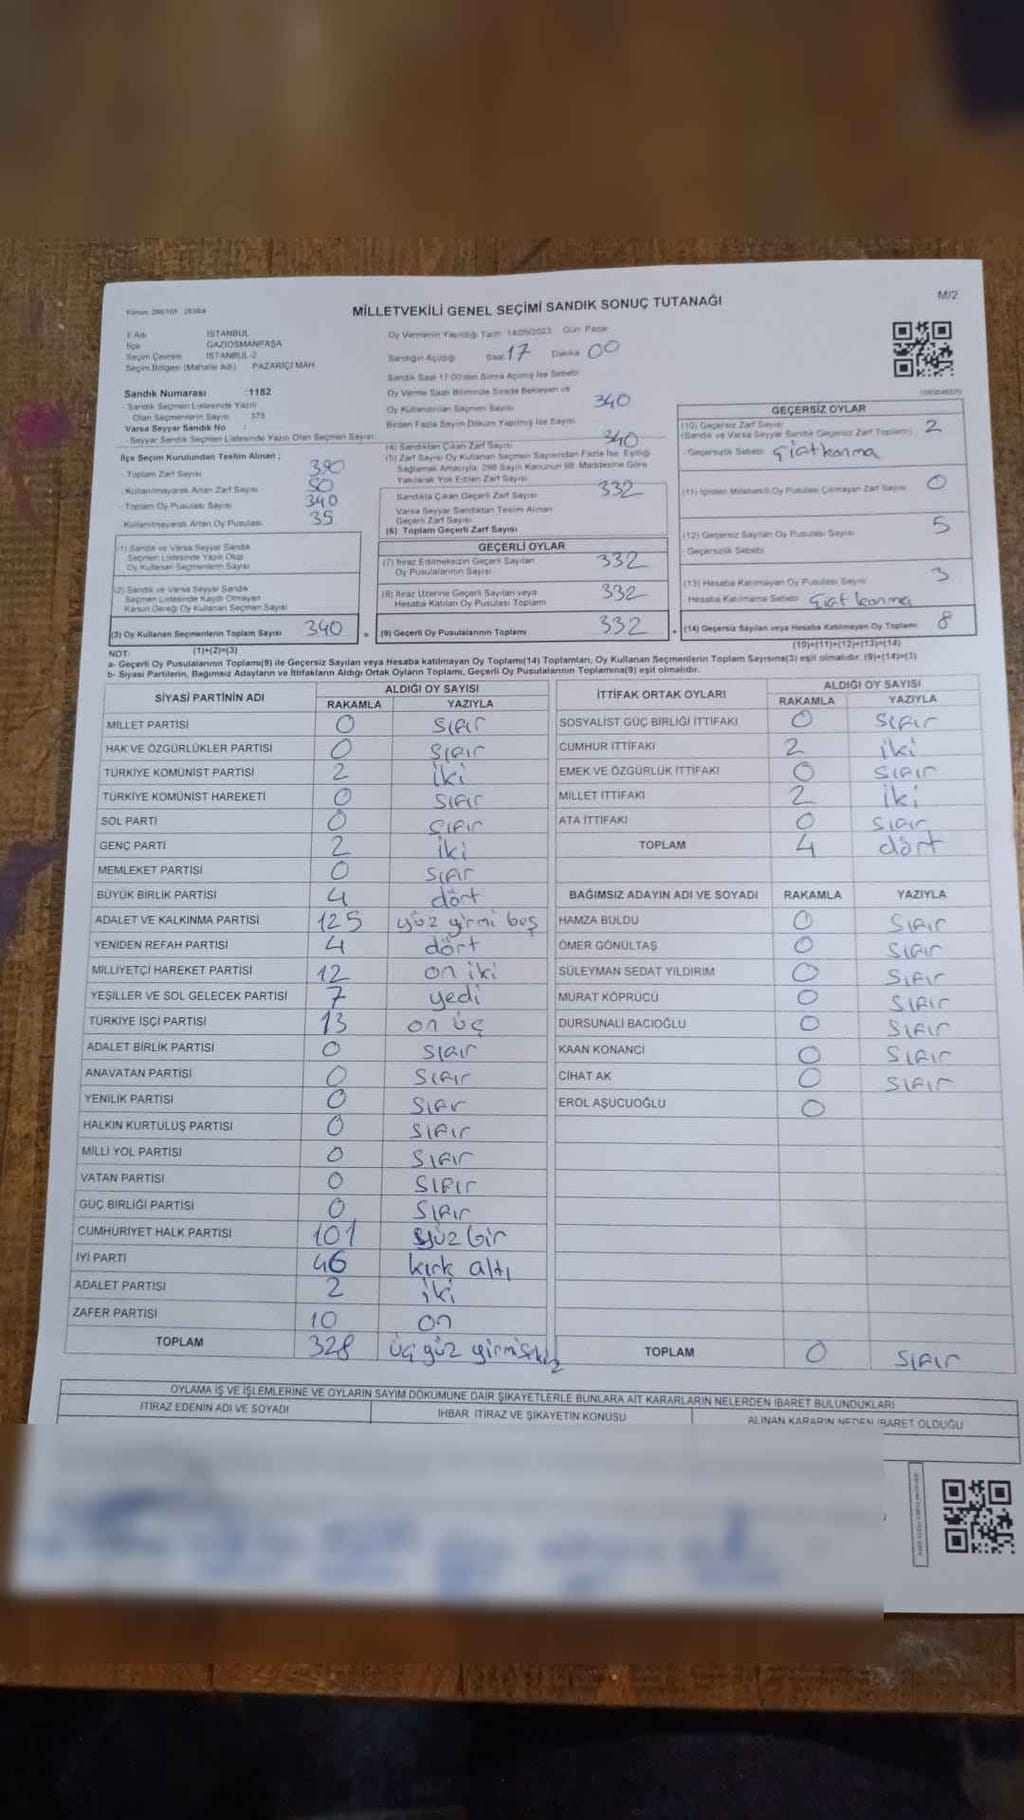 MİLLETVEKİLİ GENEL SEÇİMİ SANDIK SONUÇ TUTANAĞI
M/2
İl Adı İSTANBUL
İlçe GAZİOSMANPAŞA
Seçim Çevresi İSTANBUL-2
Seçim Bölgesi (Mahalle Adı) PAZARİÇİ MAH
Sandık Numarası :1182
Sandık Seçmen Listesinde Yazılı
Olan Seçmenlerin Sayısı 375
Varsa Seyyar Sandık No :
Seyyar Sandık Seçmen Listesinde Yazılı Olan Seçmen Sayısı:
İlçe Seçim Kurulundan Teslim Alınan ;
Toplam Zarf Sayısı 390
Kullanılmayarak Artan Zarf Sayısı 50
Toplam Oy Pusulası Sayısı 340
Kullanılmayarak Artan Oy Pusulası 35
(1) Sandık ve Varsa Seyyar Sandık
Seçmen Listesinde Yazılı Olup
Oy Kullanan Seçmenlerin Sayısı
(2) Sandık ve Varsa Seyyar Sandık
Seçmen Listesinde Kayıtlı Olmayan
Kanun Gereği Oy Kullanan Seçmen Sayısı
(3) Oy Kullanan Seçmenlerin Toplam Sayısı 340
Oy Vermenin Yapıldığı Tarih 14/05/2023 Gün Pazar
Sandığın Açıldığı Saat 17 Dakika 00
Sandık Saat 17:00'den Sonra Açılmış İse Sebebi
Oy Verme Saati Bitiminde Sırada Bekleyen ve
Oy Kullandırılan Seçmen Sayısı 340
Birden Fazla Sayım Döküm Yapılmış İse Sayısı
(4) Sandıktan Çıkan Zarf Sayısı 340
(5) Zarf Sayısı Oy Kullanan Seçmen Sayısından Fazla İse Eşitliği
Sağlamak Amacıyla, 298 Sayılı Kanunun 98. Maddesine Göre
Yakılarak Yok Edilen Zarf Sayısı
Sandıkta Çıkan Geçerli Zarf Sayısı 332
Varsa Seyyar Sandıktan Teslim Alınan
Geçerli Zarf Sayısı
(6) Toplam Geçerli Zarf Sayısı
GEÇERLİ OYLAR
(7) İtiraz Edilmeksizin Geçerli Sayılan
Oy Pusulalarının Sayısı 332
(8) İtiraz Üzerine Geçerli Sayılan veya
Hesaba Katılan Oy Pusulası Toplamı 332
(9) Geçerli Oy Pusulalarının Toplamı 332
GEÇERSİZ OYLAR
(10) Geçersiz Zarf Sayısı
(Sandık ve Varsa Seyyar Sandık Geçersiz Zarf Toplamı) 2
Geçersizlik Sebebi
(11) İçinden Milletvekili Oy Pusulası Çıkmayan Zarf Sayısı 0
(12) Geçersiz Sayılan Oy Pusulası Sayısı 5
Geçersizlik Sebebi
(13) Hesaba Katılmayan Oy Pusulası Sayısı 3
Hesaba Katılmama Sebebi
(14) Geçersiz Sayılan veya Hesaba Katılmayan Oy Toplamı 8
NOT: (1)+(2)=(3) (10)+(11)+(12)+(13)=(14)
a- Geçerli Oy Pusulasının Toplamı(9) ile Geçersiz Sayılan veya Hesaba katılmayan Oy Toplamı(14) Toplamları, Oy Kullanan Seçmenlerin Toplam Sayısına(3) eşit olmalıdır. (9)+(14)=(3)
b- Siyasi Partilerin, Bağımsız Adayların ve İttifakların Aldığı Ortak Oyların Toplamı, Geçerli Oy Pusulalarının Toplamına(9) eşit olmalıdır.
SİYASİ PARTİNİN ADI ALDIĞI OY SAYISI
RAKAMLA YAZIYLA
MİLLET PARTİSİ 0 sıfır
HAK VE ÖZGÜRLÜKLER PARTİSİ 0 sıfır
TÜRKİYE KOMÜNİST PARTİSİ 2 iki
TÜRKİYE KOMÜNİST HAREKETİ 0 sıfır
SOL PARTİ 0 sıfır
GENÇ PARTİ 2 iki
MEMLEKET PARTİSİ 0 sıfır
BÜYÜK BİRLİK PARTİSİ 4 dört
ADALET VE KALKINMA PARTİSİ 125 yüz yirmi beş
YENİDEN REFAH PARTİSİ 4 dört
MİLLİYETÇİ HAREKET PARTİSİ 12 on iki
YEŞİLLER VE SOL GELECEK PARTİSİ 7 yedi
TÜRKİYE İŞÇİ PARTİSİ 13 on üç
ADALET BİRLİK PARTİSİ 0 sıfır
ANAVATAN PARTİSİ 0 sıfır
YENİLİK PARTİSİ 0 sıfır
HALKIN KURTULUŞ PARTİSİ 0 sıfır
MİLLİ YOL PARTİSİ 0 sıfır
VATAN PARTİSİ 0 sıfır
GÜÇ BİRLİĞİ PARTİSİ 0 sıfır
CUMHURİYET HALK PARTİSİ 101 yüz bir
İYİ PARTİ 46 kırk altı
ADALET PARTİSİ 2 iki
ZAFER PARTİSİ 10 on
TOPLAM 328 üç yüz yirmisekiz
İTTİFAK ORTAK OYLARI ALDIĞI OY SAYISI
RAKAMLA YAZIYLA
SOSYALİST GÜÇ BİRLİĞİ İTTİFAKI 0 sıfır
CUMHUR İTTİFAKI 2 iki
EMEK VE ÖZGÜRLÜK İTTİFAKI 0 sıfır
MİLLET İTTİFAKI 2 iki
ATA İTTİFAKI 0 sıfır
TOPLAM 4 dört
BAĞIMSIZ ADAYIN ADI VE SOYADI RAKAMLA YAZIYLA
HAMZA BULDU 0 sıfır
ÖMER GÖNÜLTAŞ 0 sıfır
SÜLEYMAN SEDAT YILDIRIM 0 sıfır
MURAT KÖPRÜCÜ 0 sıfır
DURSUNALİ BACIOĞLU 0 sıfır
KAAN KONANCİ 0 sıfır
CİHAT AK 0 sıfır
EROL AŞUCUOĞLU 0
TOPLAM 0 sıfır
OYLAMA İŞ VE İŞLEMLERİNE VE OYLARIN SAYIM DÖKÜMÜNE DAİR ŞİKAYETLERLE BUNLARA AİT KARARLARIN NELERDEN İBARET BULUNDUKLARI
İTİRAZ EDENİN ADI VE SOYADI İHBAR, İTİRAZ VE ŞİKAYETİN KONUSU ALINAN KARARIN NEDEN İBARET OLDUĞU